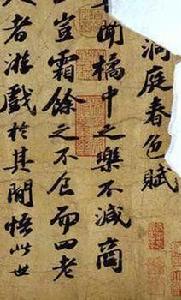 洞庭春色賦
聞橘中之樂不減商
豈霜餘之不食而四老
者游戲於其間悟此世